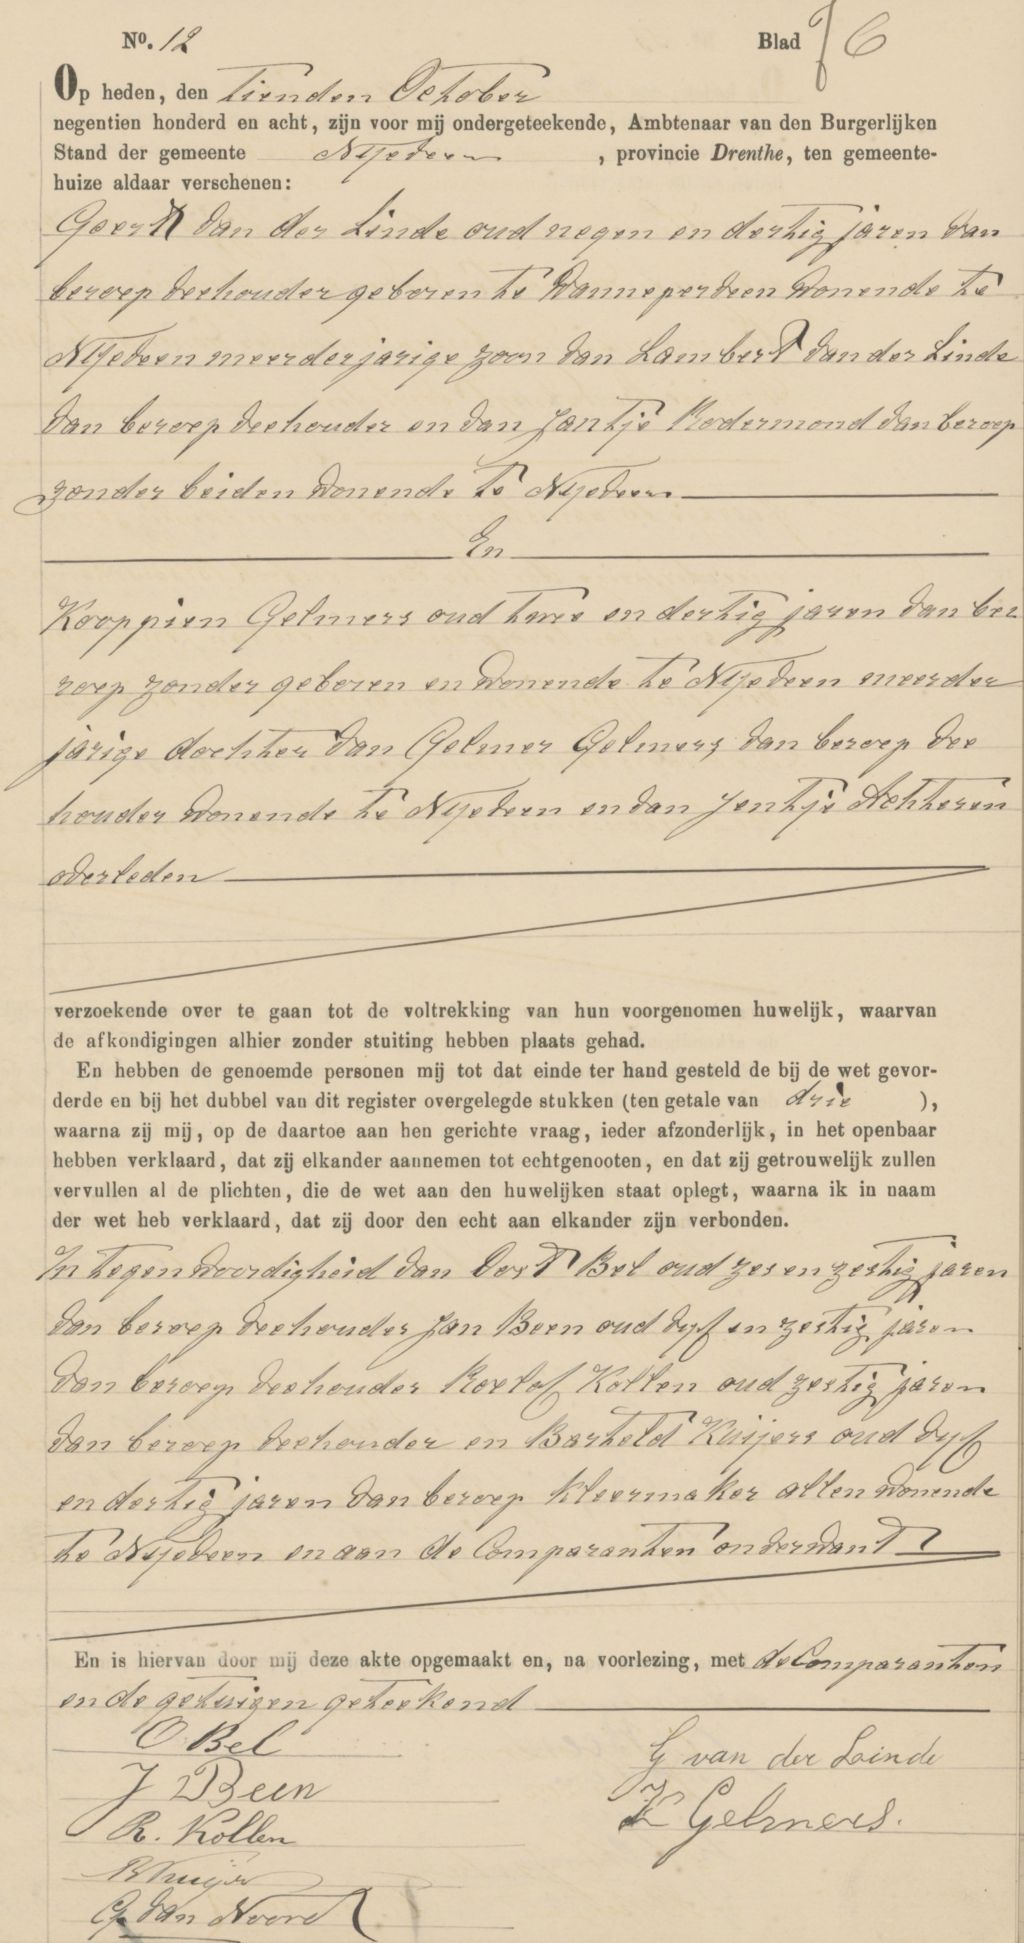 No. 12 Blad 6
Op heden, den tienden October
negentien honderd en acht, zijn voor mij ondergeteekende, Ambtenaar van den Burgerlijken
Stand der gemeente Nijeveen, provincie Drenthe, ten gemeente-
huize aldaar verschenen:
Geert van der Linde oud negen en dertig jaren van
beroep veehouder geboren te Wanneperveen wonende te
Nijeveen meerderjarige zoon van Lambert van der Linde
van beroep veehouder en van Jantje Rodermond van beroep
zonder beiden wonende te Nijeveen
En
Kooppien Gelmers oud twee en dertig jaren van be-
roep zonder geboren en wonende te Nijeveen meerder
jarige dochter van Gelmer Gelmers van beroep vee
houder wonende te Nijeveen en van Jentje Achteren
overleden
verzoekende over te gaan tot de voltrekking van hun voorgenomen huwelijk, waarvan
de afkondigingen alhier zonder stuiting hebben plaats gehad.
En hebben de genoemde personen mij tot dat einde ter hand gesteld de bij de wet gevor-
derde en bij het dubbel van dit register overgelegde stukken (ten getale van drie ),
waarna zij mij, op de daartoe aan hen gerichte vraag, ieder afzonderlijk, in het openbaar
hebben verklaard, dat zij elkander aannemen tot echtgenooten, en dat zij getrouwelijk zullen
vervullen al de plichten, die de wet aan den huwelijken staat oplegt, waarna ik in naam
der wet heb verklaard, dat zij door den echt aan elkander zijn verbonden.
In tegenwoordigheid van Bel oud zes en zestig jaren
van beroep veehouder Jan Been oud vyf en zestig jaren
van beroep veehouder Roelof Kollen oud zestig jaren
van beroep veehouder en Barteld Kuijers oud vyf
en dertig jaren van beroep kleermaker allen wonende
te Nijeveen en aan de Comparanten onverwant
En is hiervan door mij deze akte opgemaakt en, na voorlezing, met de Comparanten
en de getuigen geteekend
O Bel
G van der Linde
J Been
K Gelmers.
R. Kollen
B Kuijer
G van Noord